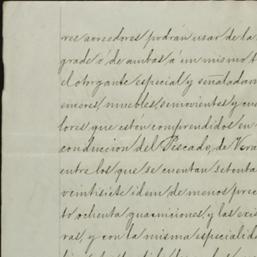 res acreedores podrán usar de la
grade ó de ambas á un mismo t
el otorgante especial y señaladam
enseres, muebles, semovientes y cua
lores que estén comprendidos en
conduccion del Pescado, de Vera
entre los que se cuentan setenta
veintisiete idem de menos prec
to ochenta guarniciones, y las exis
ras, y con la misma especialid